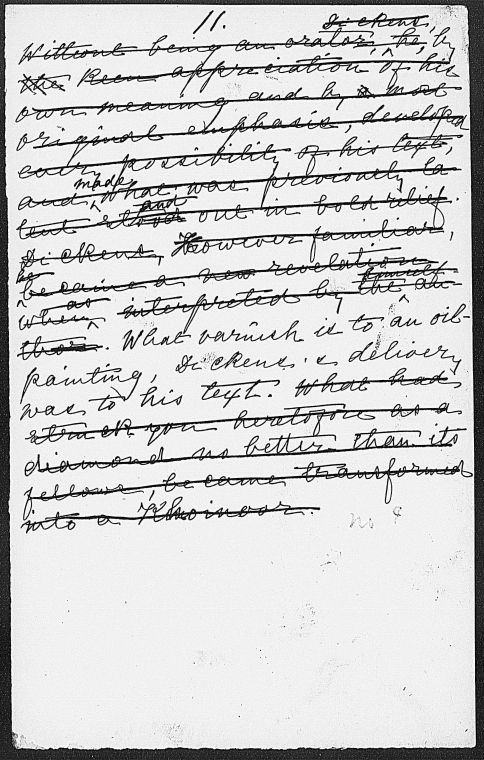 11.
Dickens,
Without being an orator, he, by
the keen appreciation of his
own meaning and by a most
original emphasis, developed
every possibility of his text,
made
and, what was previously la-
and
tent stood out in bold relief.
Dickens, However familiar,
he
became a new revelation
as himself
when interpreted by the au-
thor. What varnish is to an oil-
painting, Dickens's delivery
was to his text. What had
struck you heretofore as a
diamond no better than its
fellows, became transformed
into a Khoinoor.
no